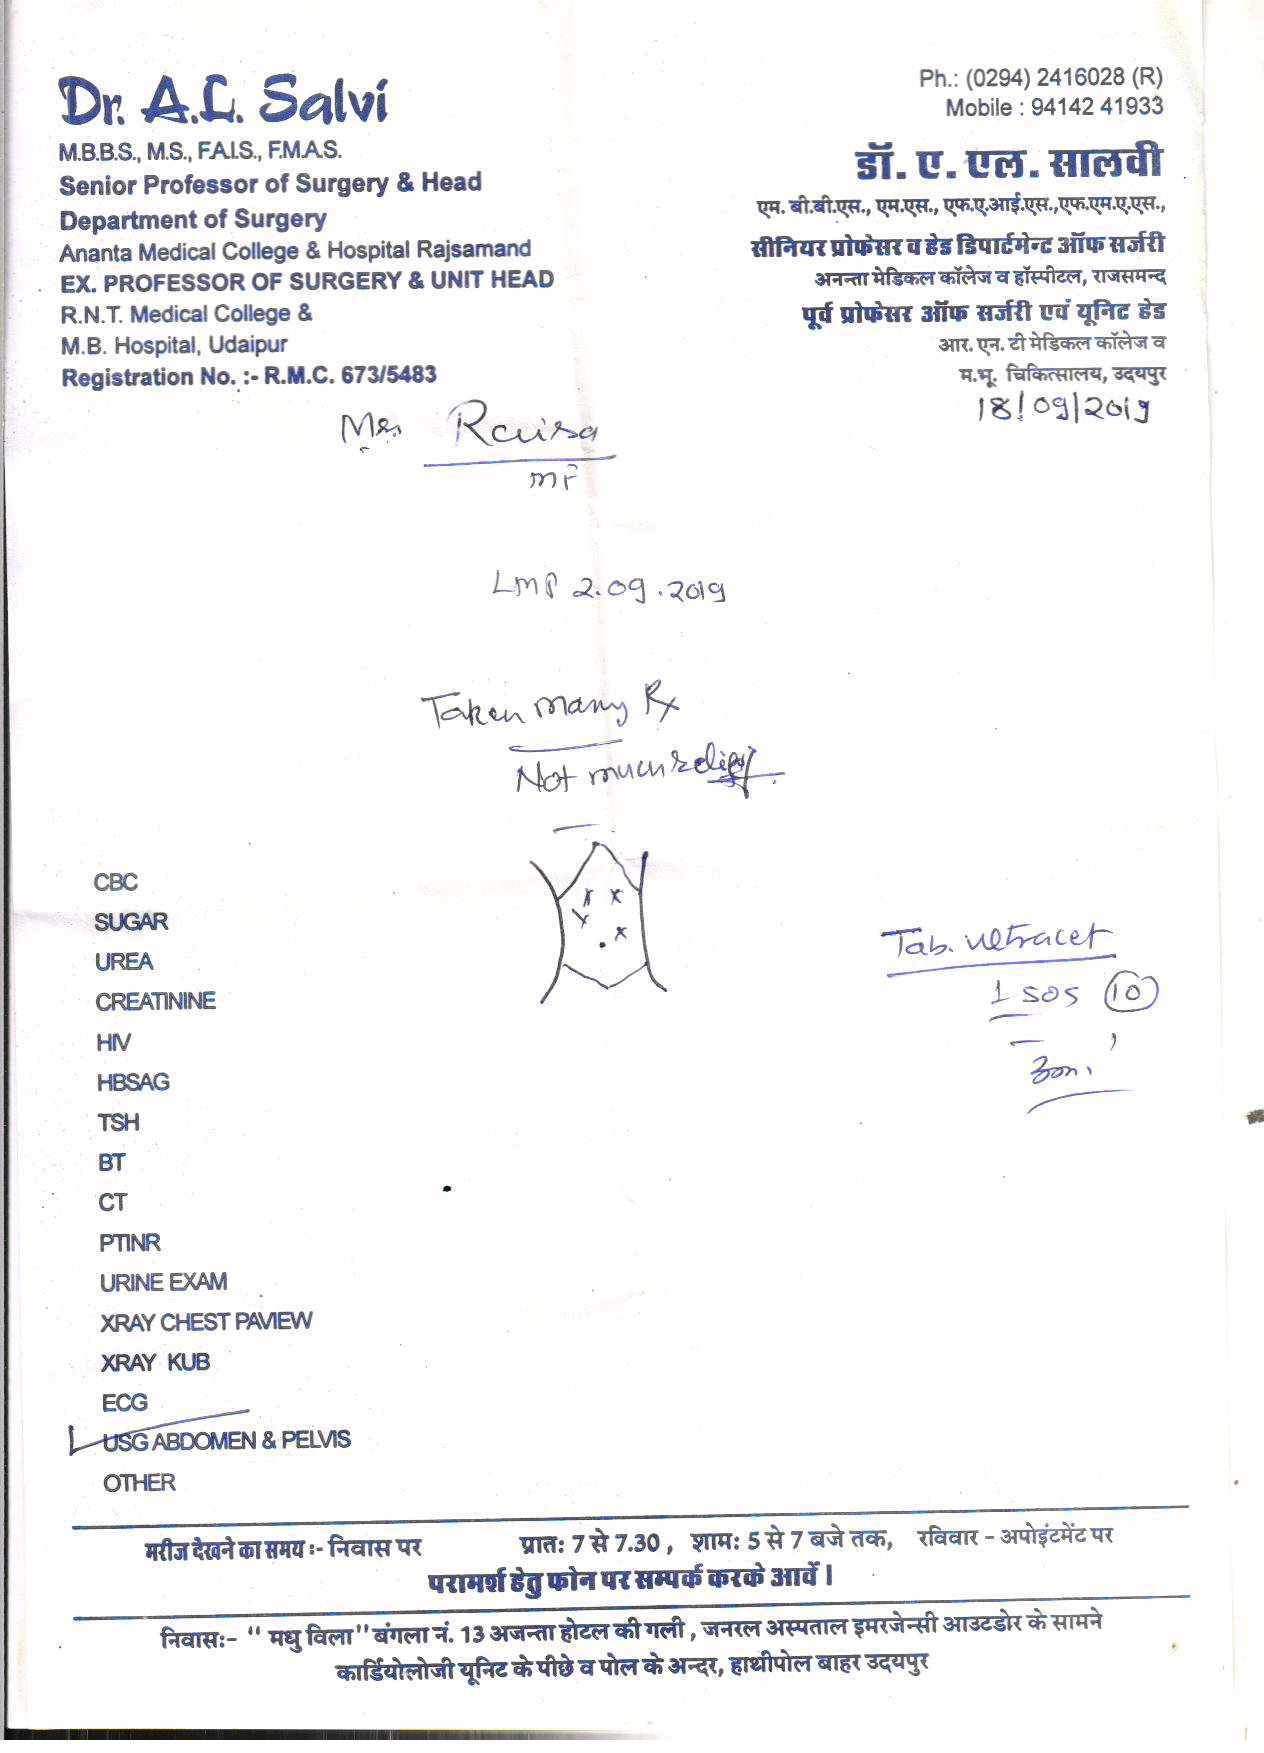 Dr. A.L. Salvi
M.B.B.S., M.S., F.A.I.S., F.M.A.S.
Senior Professor of Surgery & Head
Department of Surgery
Ananta Medical College & Hospital Rajsamand
EX. PROFESSOR OF SURGERY & UNIT HEAD
R.N.T. Medical College &
M.B. Hospital, Udaipur
Registration No. :- R.M.C. 673/5483
Ph.: (0294) 2416028 (R)
Mobile : 94142 41933
डॉ. ए. एल. सालवी
एम. बी.बी.एस., एम.एस., एफ.ए.आई.एस.,एफ.एम.ए.एस.,
सीनियर प्रोफेसर व हेड डिपार्टमेन्ट ऑफ सर्जरी
अनन्ता मेडिकल कॉलेज व हॉस्पीटल, राजसमन्द
पूर्व प्रोफेसर ऑफ सर्जरी एवं यूनिट हेड
आर. एन. टी मेडिकल कॉलेज व
म.भू. चिकित्सालय, उदयपुर
18/09/2019
LMP 2.09.2019
Taken many Rx
Not much relief
CBC
SUGAR
UREA
CREATININE
HIV
HBSAG
TSH
BT
CT
PTINR
URINE EXAM
XRAY CHEST PAVIEW
XRAY KUB
ECG
USG ABDOMEN & PELVIS
OTHER
Tab. Ultracet
1 SOS 10
मरीज देखने का समय :- निवास पर प्रातः 7 से 7.30 , शामः 5 से 7 बजे तक, रविवार - अपोइंटमेंट पर
परामर्श हेतु फोन पर सम्पर्क करके आवें।
निवासः- " मधु विला" बंगला नं. 13 अजन्ता होटल की गली , जनरल अस्पताल इमरजेन्सी आउटडोर के सामने
कार्डियोलोजी यूनिट के पीछे व पोल के अन्दर, हाथीपोल बाहर उदयपुर